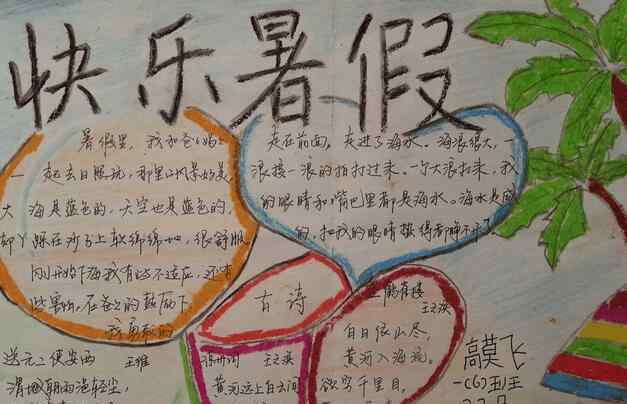 快乐暑假
暑假里，我和爸妈
一起去日照玩，那里的风景好美，
大海是蓝色的，天空也是蓝色的，
脚丫踩在沙子上软绵绵地，很舒服
刚开始下海我有些不适应，还有
些害怕，在爸爸的鼓励下，
我勇敢的
走在前面，走进了海水。海浪很大，一
浪接一浪的拍打过来。一个大浪打来，我
的眼睛和嘴巴里都是海水。海水是咸
的，把我的眼睛
古诗
登鹳雀楼
王之涣
白日依山尽，
黄河入海流。
欲穷千里目，
送元二使安西
王维
渭城朝雨浥轻尘，
凉州词
王之涣
黄河远上白云间
高莫飞
一(6)